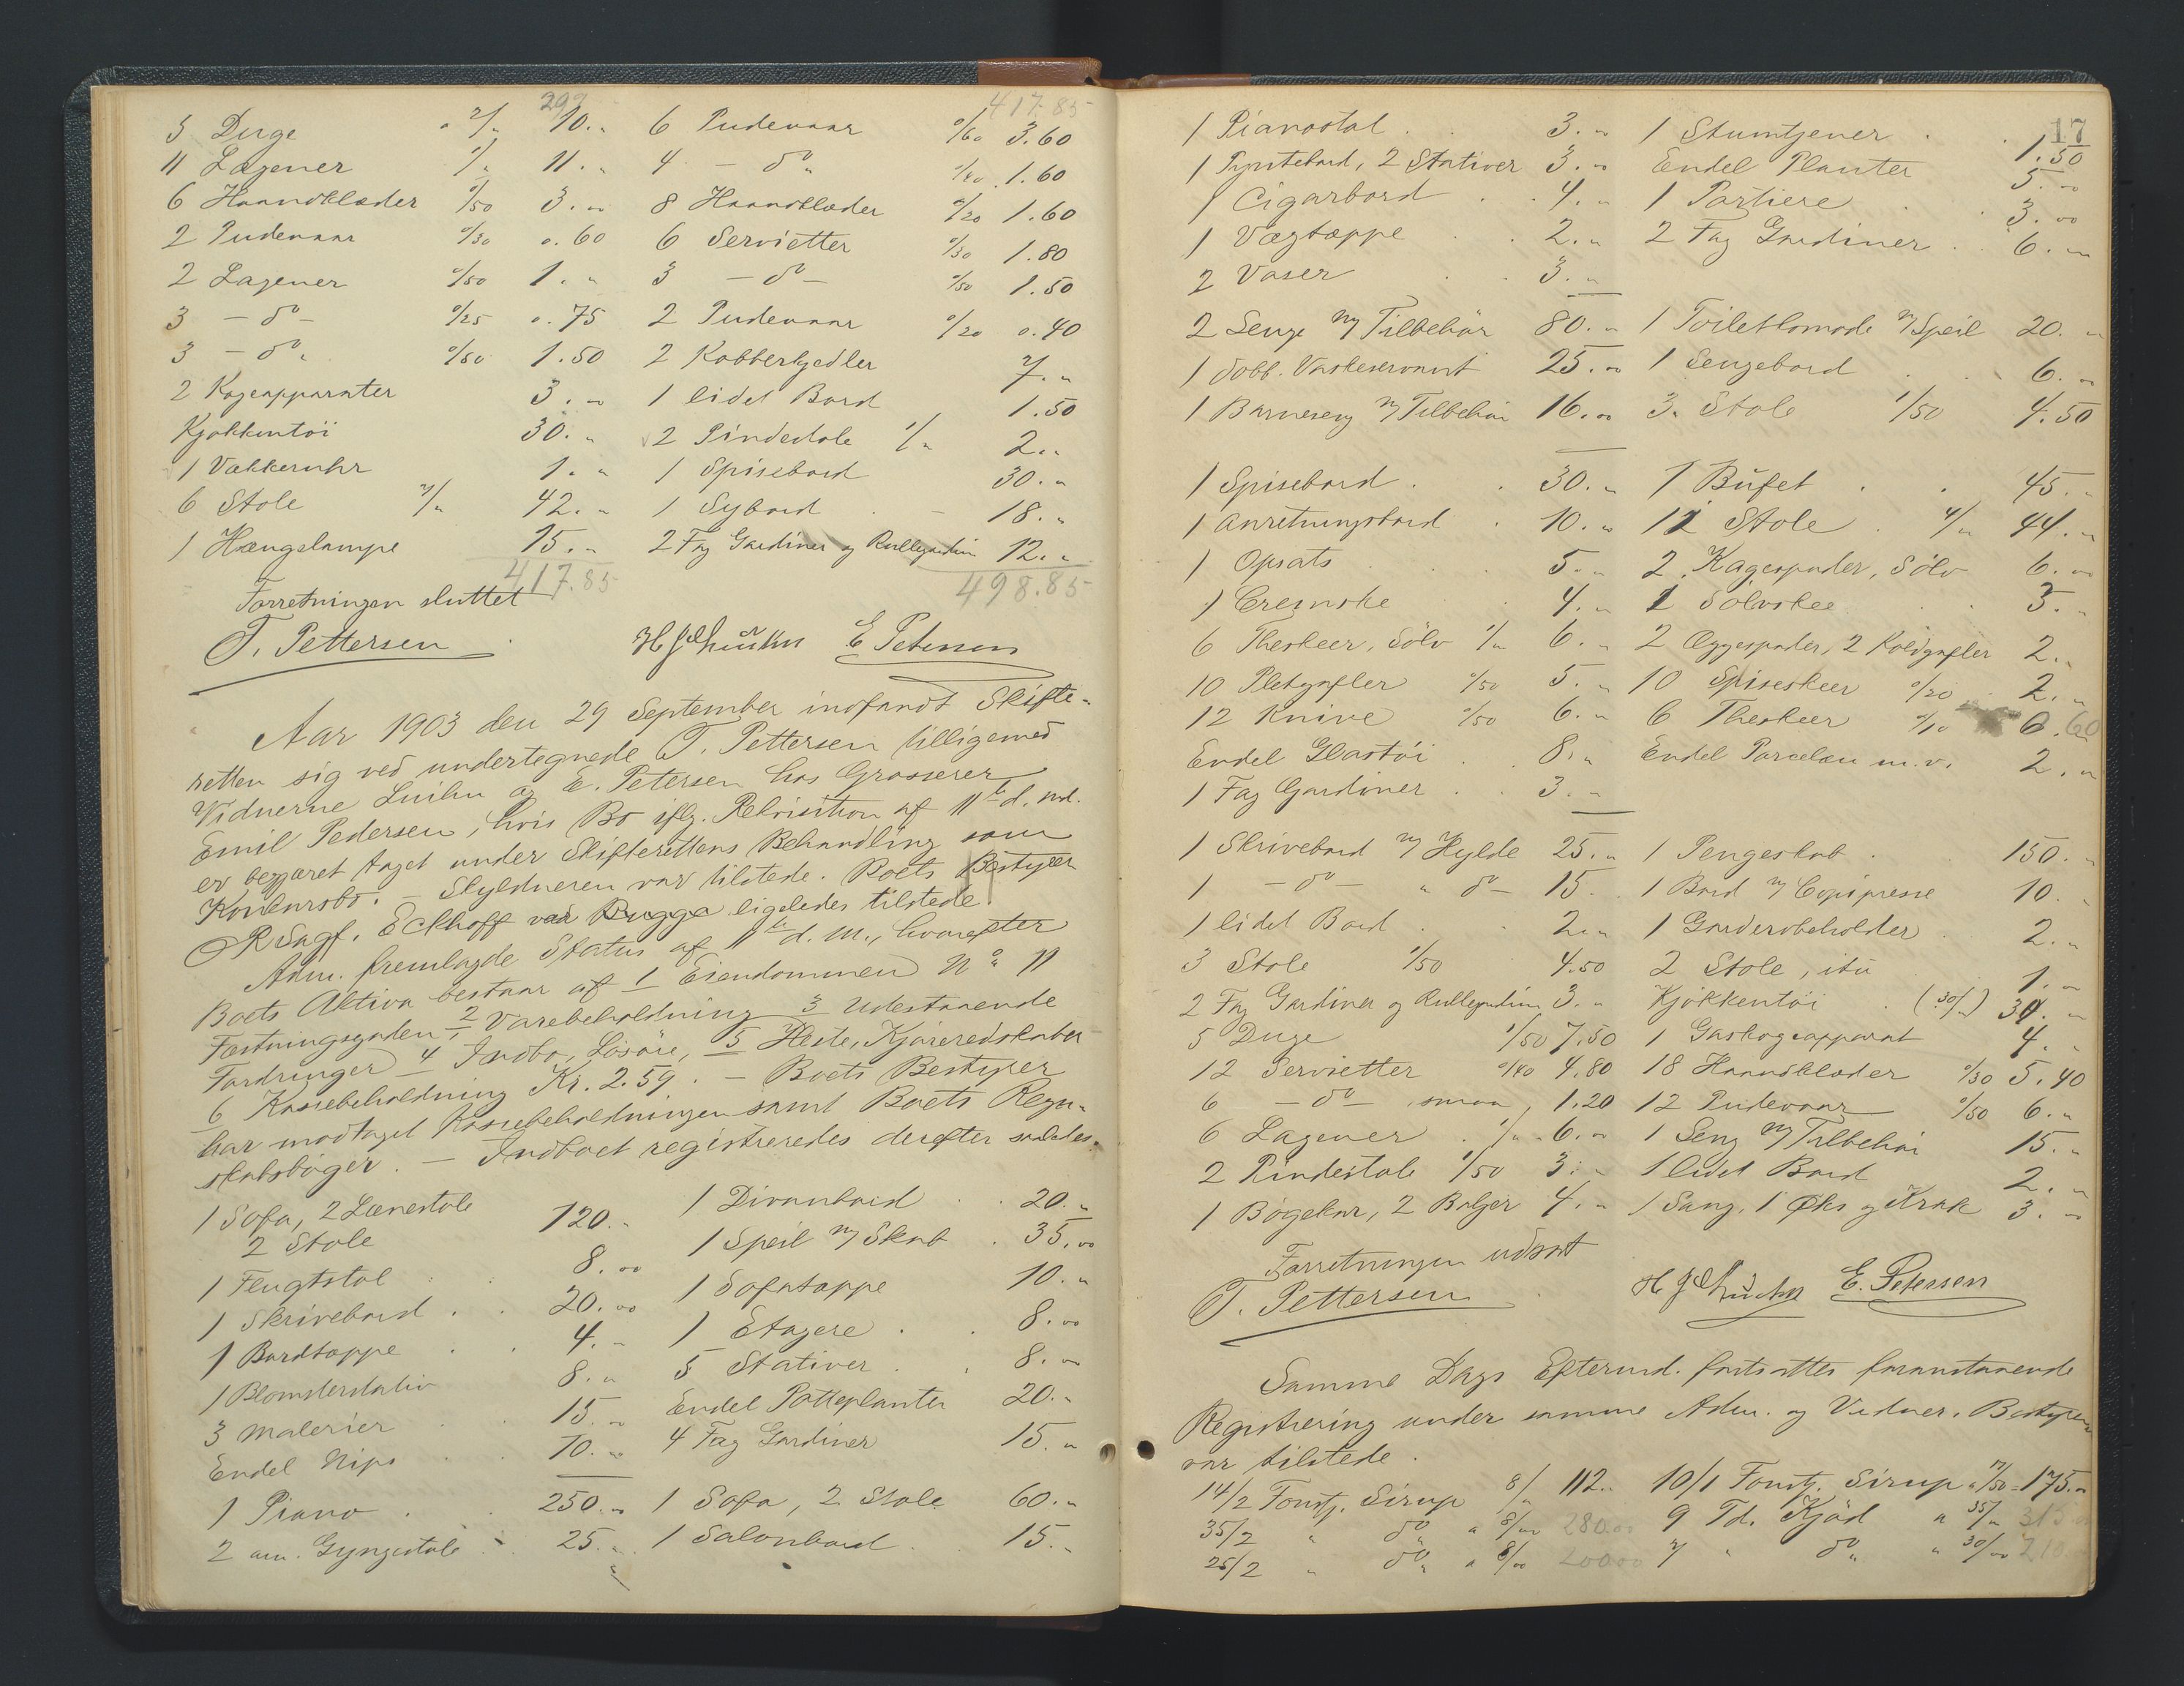 299 417.85
5 Duge a 2/" 10." 6 Pudevaar "/60 3.60
11 Lagener 1/" 11." 4 - do " "/40 1.60
6 Haandklæder "/50 3." 8 Haandklæder "/20 1.60
2 Pudevaar "/30 0.60 6 Servietter "/30 1.80
2 Lagener "/50 1." 3 - do - "/50 1.50
3 - do - "/25 0.75 2 Pudevaar "/20 0.40
3 - do " "/50 1.50 2 Kobberkjedler 7."
2 Kogeapparater 3." 1 lidet Bord 1.50
Kjøkkentøi 30." 2 Pindestole 1/" 2."
1 Vækkeruhr 1." 1 Spisebord 30."
6 Stole 7/" 42." 1 Sybord 18."
1 Hængelampe 15." 2 Fag Gardiner og Rullegardin 12."
417.85 498.85
Forretningen sluttet
T. Pettersen E Petersen
Aar 1903 den 29 September indfandt Skifte-
retten sig ved undertegnede T. Pettersen tilligemed
Vidnerne og E. Petersen hos Grosserer
Emil Pedersen, hvis Bo iflg. Rekvisition af 11te d. md.
er begjæret taget under Skifterettens Behandling som
Konkursbo. - Skyldneren var tilstede. Boets Bestyrer
O.R.Sagf. Eckhoff ved Bugge ligeledes tilstede
Adm. fremlagde Status af 11te d. M., hvorefter
Boets Aktiva bestaar af 1 Eiendommen No 11
Fæstningsgaden, 2 Varebeholdning 3 Udestaaende
Fordringer 4 Indbo, Løsøre, 5 Heste, Kjøreredskaber
6 Kassebeholdning Kr. 2.59. - Boets Bestyrer
har modtaget Kassebeholdningen samt Boets Regn-
skabsbøger. - Indboet registreredes derefter saaledes.
1 Sofa, 2 Lænestole 1 Divanbord 20."
2 Stole 120." 1 Speil m/ Skab 35.00
1 Flugtstol 8.00 1 Sofatæppe 10."
1 Skrivebord 20.00 1 Etagere 8.00
1 Bordtæppe 4." 5 Stativer 8.00
1 Blomsterstativ 8." Endel Potteplanter 20."
3 Malerier 15." 4 Fag Gardiner 15."
Endel Nips 10."
1 Piano 250." 1 Sofa, 2 Stole 60."
2 am. Gyngestole 25." 1 Salonbord 15."
17
1 Pianostol 3." 1 Stumtjener 1.50
1 Pyntebord, 2 Stativer 3." Endel Planter 5."
1 Cigarbord 4." 1 Portiere 3.00
1 Vægtæppe 2." 2 Fag Gardiner 6."
2 Vaser 3."
2 Senge m/ Tilbehør 80." 1 Toiletkomode m/ Speil 20."
1 dobb. Vaskeservant 25." 1 Sengebord 6."
1 Barneseng m/ Tilbehør 16." 3 Stole 1/50 4.50
1 Spisebord 30." 1 Büfet 45."
1 Anretningsbord 10." 11 Stole 4/" 44."
1 Opsats 5." 2 Kagespader, Sølv 6."
1 Cremske 4." 1 Sølvskee 3."
6 Theskeer, Sølv 1/" 6." 2 Æggespader, 2 Koldgafler 2."
10 Pletgafler "/50 5." 10 Spiseskeer "/20 2."
12 Knive "/50 6." 6 Theskeer "/10 0.60
Endel Glastøi 8." Endel Porcelæn m.v. 2."
1 Fag Gardiner 3."
1 Skrivebord m/ Hylde 25." 1 Pengeskab 150."
1 - do - " do - 15. 1 Bord m/ Copipresse 10."
1 lidet Bord 2." 1 Garderobeholder 2."
3 Stole 1/50 4.50 2 Stole, itu 1."
2 Fag Gardiner og Rullegardiner 3." Kjøkkentøi (30/") 30."
5 Duge 1/50 7.50 1 Gaskogeapparat 4."
12 Servietter "/40 4.80 18 Haandklæder "/30 5.40
6 - do - smaa 1.20 12 Pudevaar "/50 6."
6 Lagener 1/" 6." 1 Seng m/ Tilbehør 15."
2 Pindestole 1/50 3." 1 lidet Bord 2."
1 Bøgekar, 2 Baljer 4." 1 Saug, 1 Øks og Krak 3."
Forretningen udsat
T. Pettersen E. Petersen
Samme Dags Eftermd. fortsattes foranstaaende
Registrering under samme Adm. og Vidner. Bestyreren
var tilstede.
14/2 Fonstj. Sirup 8/" 112." 10/1 Fonstj. Sirup a 17/50 = 175."
35/2 " do " a 8/00 280.00 9 Td. Kjød a 35/" 315
25/2 " do " a 8/00 200.00 7 " do " " 30/00 210